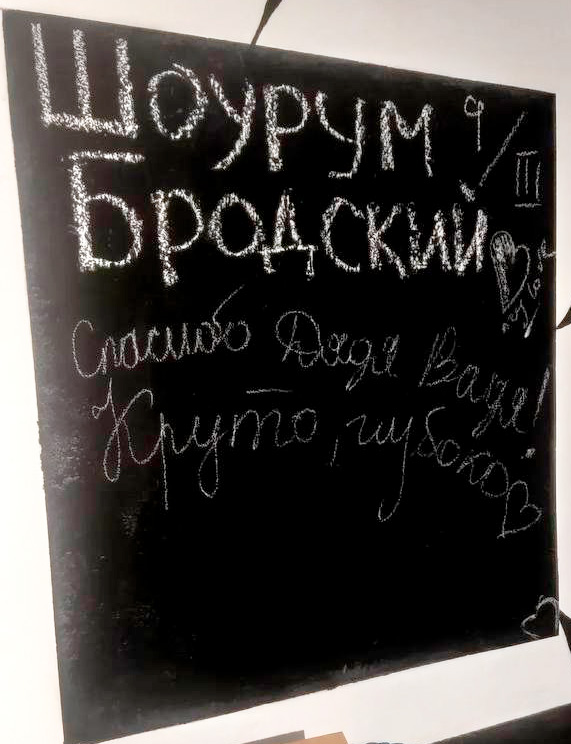 Шоурум 9/III
Бродский
Спасибо Дядя Вадя!
Круто, глубоко